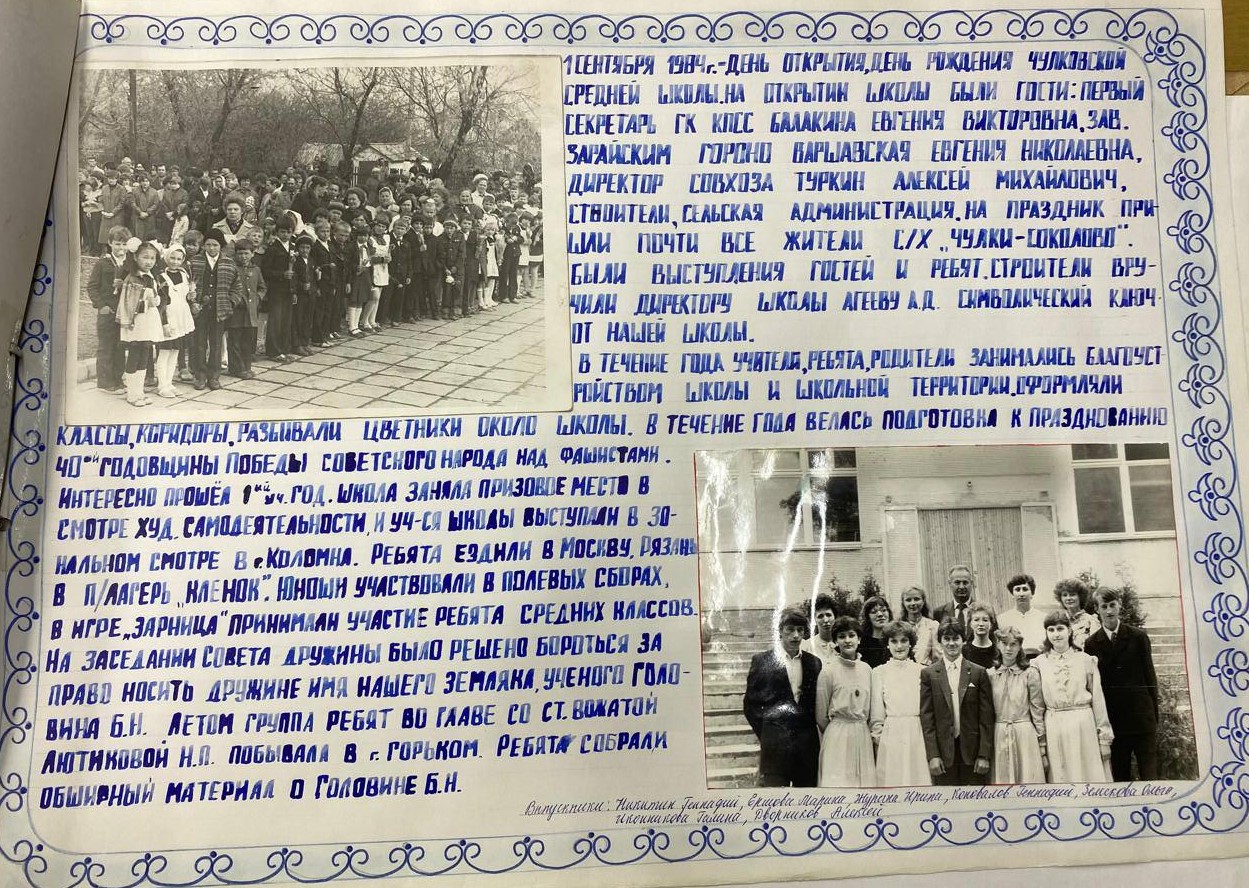 1 СЕНТЯБРЯ 1984г.-ДЕНЬ ОТКРЫТИЯ, ДЕНЬ РОЖДЕНИЯ ЧУЛКОВСКОЙ
СРЕДНЕЙ ШКОЛЫ. НА ОТКРЫТИИ ШКОЛЫ БЫЛИ ГОСТИ: ПЕРВЫЙ
СЕКРЕТАРЬ ГК КПСС БАЛАКИНА ЕВГЕНИЯ ВИКТОРОВНА, ЗАВ.
ЗАРАЙСКИМ ГОРОНО ВАРШАВСКАЯ ЕВГЕНИЯ НИКОЛАЕВНА,
ДИРЕКТОР СОВХОЗА ТУРКИН АЛЕКСЕЙ МИХАЙЛОВИЧ,
СТРОИТЕЛИ, СЕЛЬСКАЯ АДМИНИСТРАЦИЯ. НА ПРАЗДНИК ПРИ-
ШЛИ ПОЧТИ ВСЕ ЖИТЕЛИ С/Х „ЧУЛКИ-СОКОЛОВО".
БЫЛИ ВЫСТУПЛЕНИЯ ГОСТЕЙ И РЕБЯТ. СТРОИТЕЛИ ВРУ-
ЧИЛИ ДИРЕКТОРУ ШКОЛЫ АГЕЕВУ А.Д. СИМВОЛИЧЕСКИЙ КЛЮЧ
ОТ НАШЕЙ ШКОЛЫ.
В ТЕЧЕНИЕ ГОДА УЧИТЕЛЯ, РЕБЯТА, РОДИТЕЛИ ЗАНИМАЛИСЬ БЛАГОУСТ-
РОЙСТВОМ ШКОЛЫ И ШКОЛЬНОЙ ТЕРРИТОРИИ. ОФОРМЛЯЛИ
КЛАССЫ, КОРИДОРЫ, РАЗБИВАЛИ ЦВЕТНИКИ ОКОЛО ШКОЛЫ. В ТЕЧЕНИЕ ГОДА ВЕЛАСЬ ПОДГОТОВКА К ПРАЗДНОВАНИЮ
40ой ГОДОВЩИНЫ ПОБЕДЫ СОВЕТСКОГО НАРОДА НАД ФАШИСТАМИ.
ИНТЕРЕСНО ПРОШЁЛ 1ый уч. ГОД. ШКОЛА ЗАНЯЛА ПРИЗОВОЕ МЕСТО В
СМОТРЕ ХУД. САМОДЕЯТЕЛЬНОСТИ, И УЧ-СЯ ШКОЛЫ ВЫСТУПАЛИ В ЗО-
НАЛЬНОМ СМОТРЕ В г. КОЛОМНА. РЕБЯТА ЕЗДИЛИ В МОСКВУ, РЯЗАНЬ
В П/ЛАГЕРЬ „КЛЕНОК". ЮНОШИ УЧАСТВОВАЛИ В ПОЛЕВЫХ СБОРАХ,
В ИГРЕ „ЗАРНИЦА" ПРИНИМАЛИ УЧАСТИЕ РЕБЯТА СРЕДНИХ КЛАССОВ.
НА ЗАСЕДАНИИ СОВЕТА ДРУЖИНЫ БЫЛО РЕШЕНО БОРОТЬСЯ ЗА
ПРАВО НОСИТЬ ДРУЖИНЕ ИМЯ НАШЕГО ЗЕМЛЯКА, УЧЕНОГО ГОЛО-
ВИНА Б.Н. ЛЕТОМ ГРУППА РЕБЯТ ВО ГЛАВЕ СО СТ. ВОЖАТОЙ
ЛЮТИКОВОЙ Н.П. ПОБЫВАЛА В г. ГОРЬКОМ. РЕБЯТА СОБРАЛИ
ОБШИРНЫЙ МАТЕРИАЛ О ГОЛОВИНЕ Б.Н.
Выпускники: Никитин Геннадий, Ершова Марина, Журина Ирина, Коновалов Геннадий, Земскова Ольга,
Иконникова Галина, Дворников Алексей